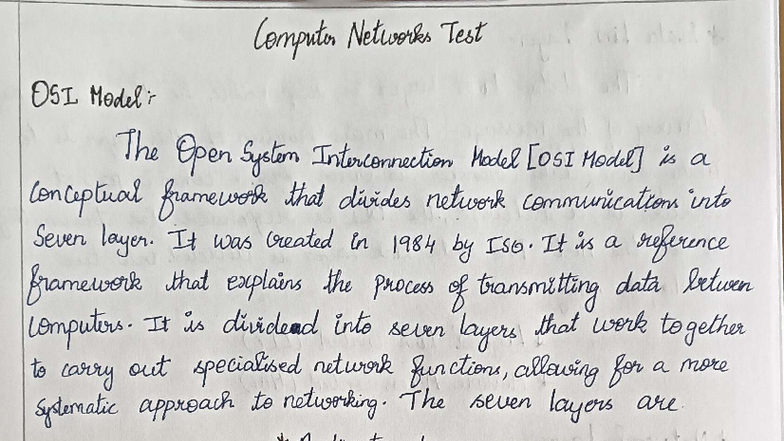 Computer Networks Test
OSI Model :-
The Open System Interconnection Model [OSI Model] is a
conceptual framework that divides network communications into
Seven layer. It was created in 1984 by ISO. It is a reference
framework that explains the process of transmitting data between
computers. It is divided into seven layers that work together
to carry out specialised network functions, allowing for a more
systematic approach to networking. The seven layers are